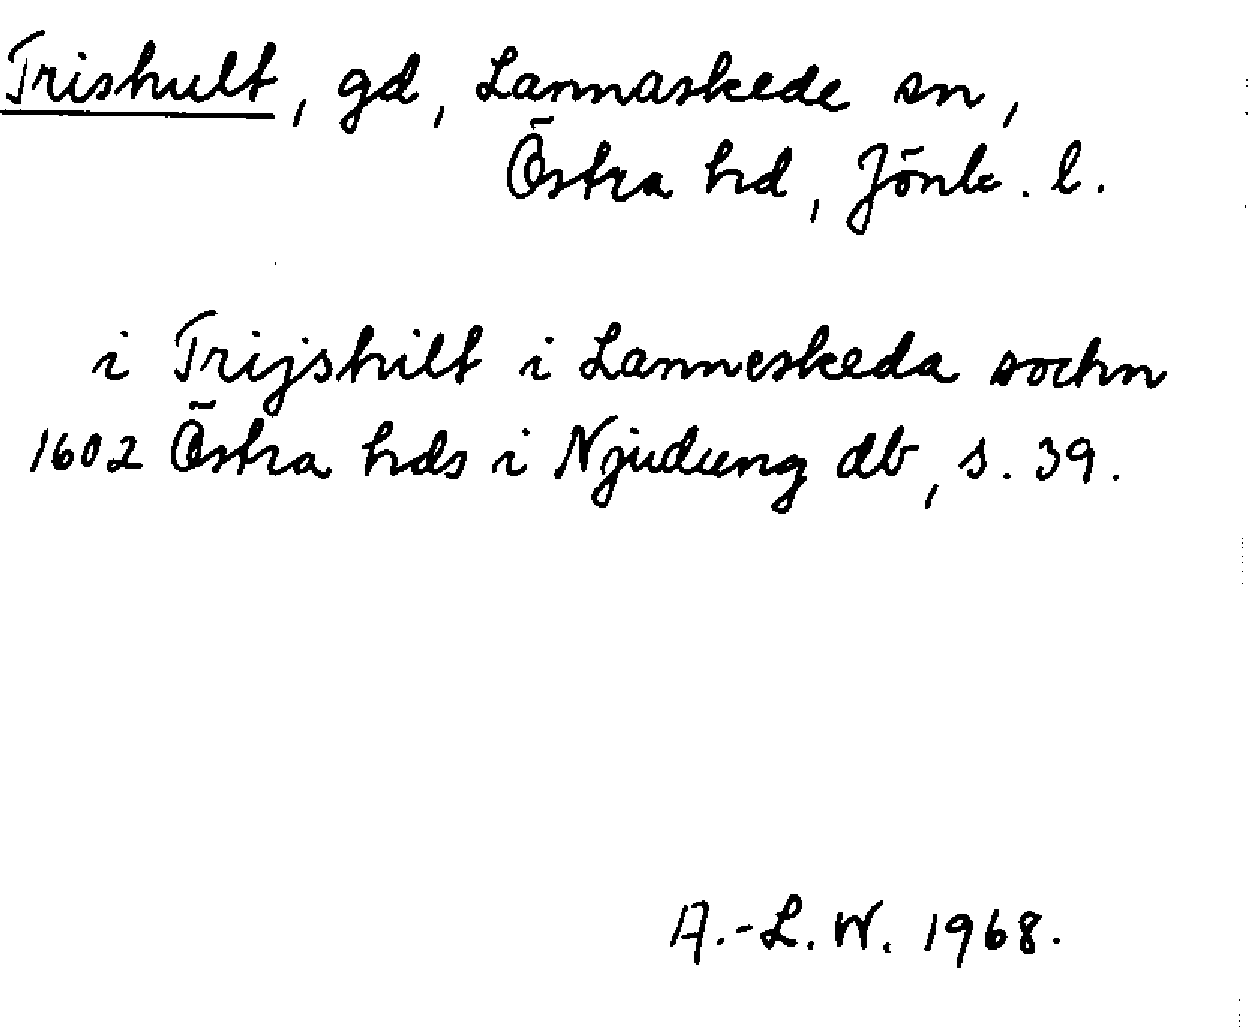 Trishult, gd, Lannaskede sn,
Östra hd, Jönk. l.
i Trijshilt i Lanneskeda sochn
1602 Östra hds i Njudung db, s. 39.
A.-L. W. 1968.